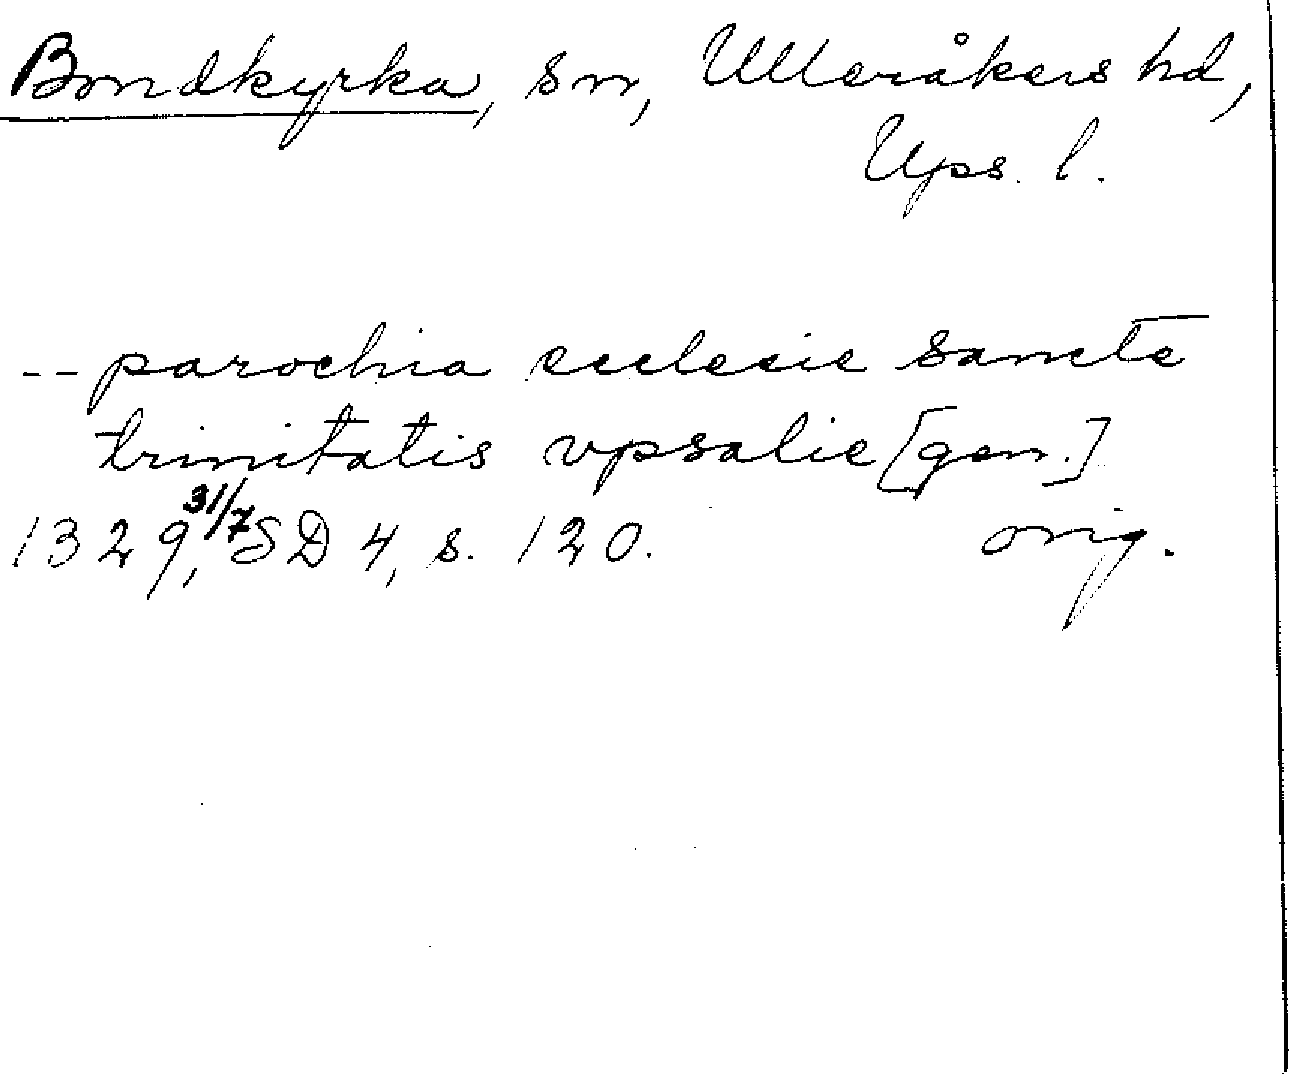 Bondkyrka, sn, Ulleråkers hd,
Ups. l.
-- parochia ecclesie sancte
trinitatis vpsalie [gen.]
1329, 31/7 SD 4, s. 120. orig.